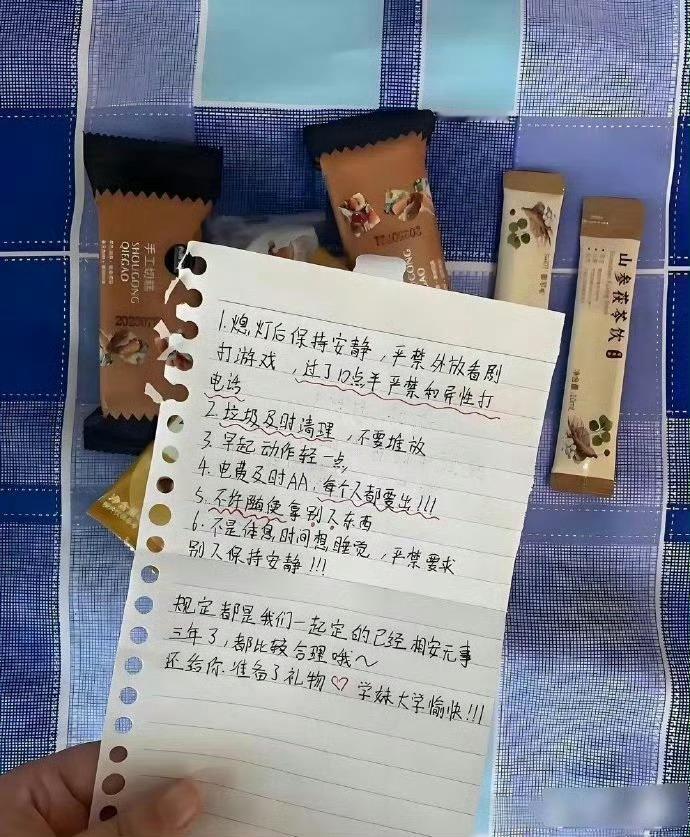 手工切糕
SHOUGONG
QIEGAO
SHOUGONG
QIEGAO
山参茯苓饮
1.熄灯后保持安静，严禁外放看剧
打游戏，过了12点半严禁和异性打
电话
2.垃圾及时清理，不要堆放
3.早起动作轻一点
4.电费及时AA，每个人都要出!!!
5.不许随便拿别人东西
6.不是休息时间想睡觉，严禁要求
别人保持安静!!!
规定都是我们一起定的已经相安无事
三年了，都比较合理哦～
还给你准备了礼物♡ 学妹大学愉快!!!